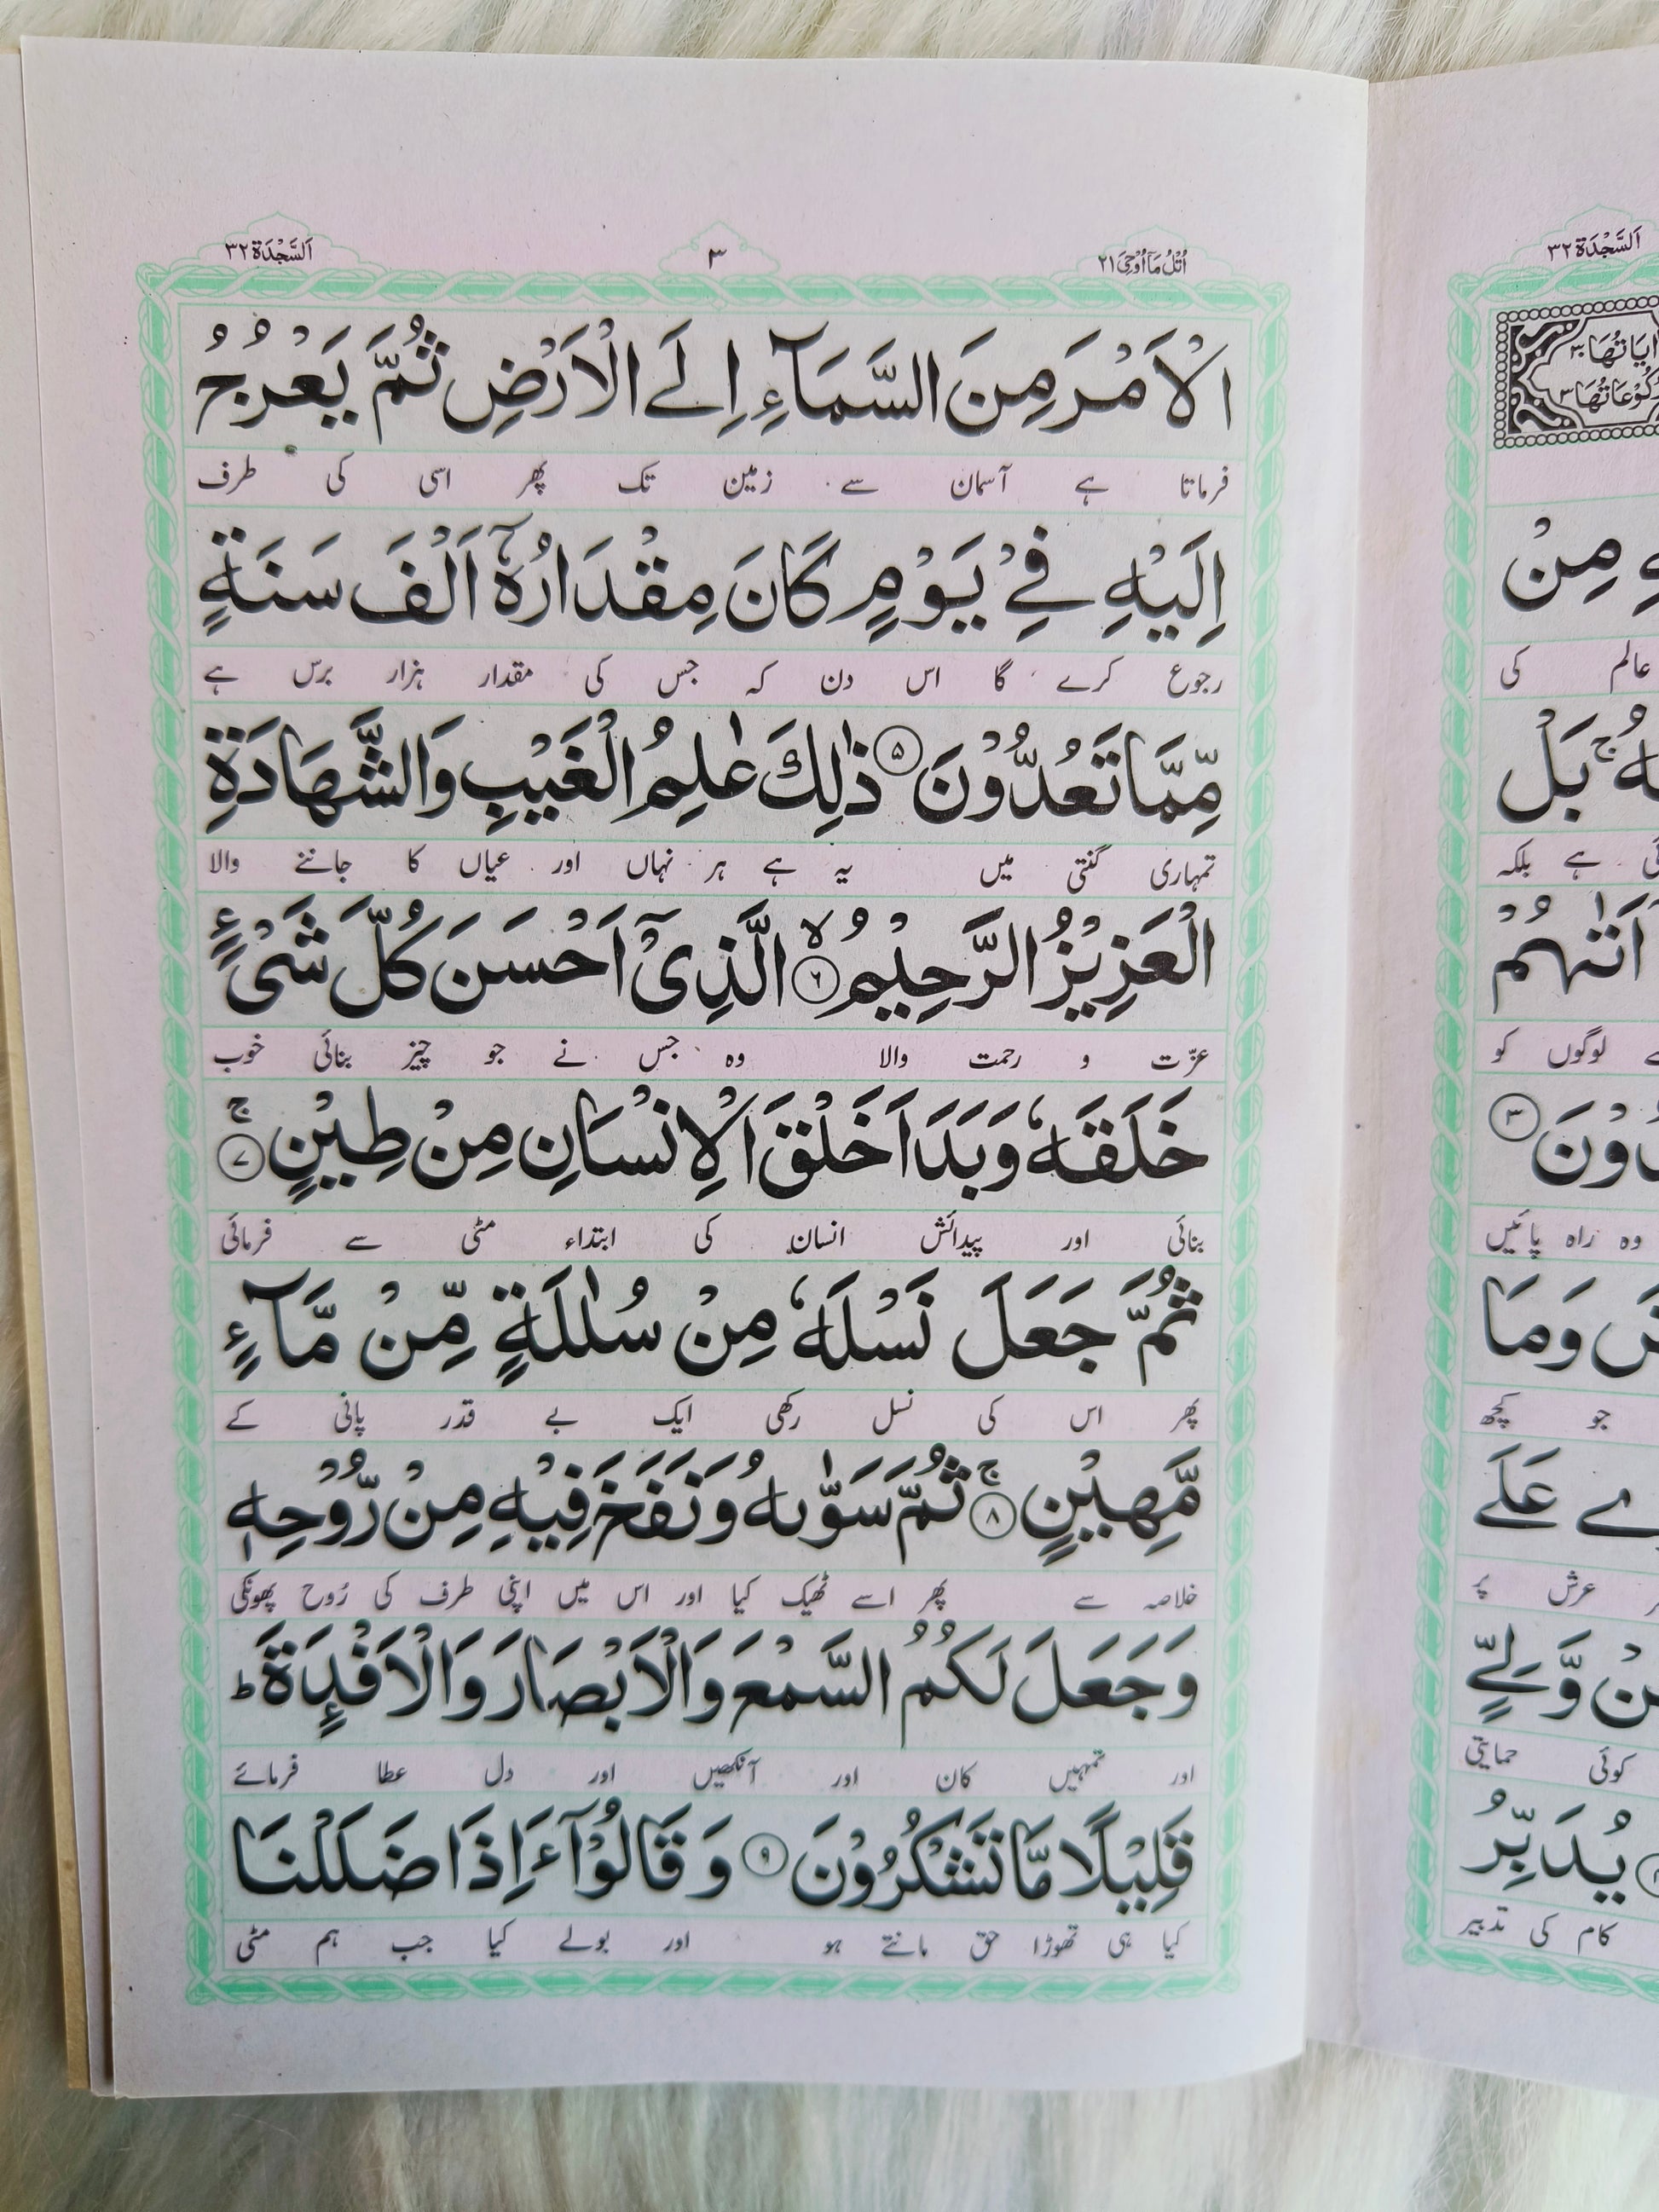 اُتْلُ مَاۤ اُوْحِیَ ۲۱
۳
اَلسَّجْدَة ۳۲
الْاَمْرَ مِنَ السَّمَآءِ اِلَى الْاَرْضِ ثُمَّ يَعْرُجُ
فرماتا ہے آسمان سے زمین تک پھر اسی کی طرف
اِلَيْهِ فِيْ يَوْمٍ كَانَ مِقْدَارُهٗٓ اَلْفَ سَنَةٍ
رجوع کرے گا اس دن کہ جس کی مقدار ہزار برس ہے
مِّمَّا تَعُدُّوْنَ ۵ ذٰلِكَ عٰلِمُ الْغَيْبِ وَالشَّهَادَةِ
تمہاری گنتی میں یہ ہے ہر نہاں اور عیاں کا جاننے والا
الْعَزِيْزُ الرَّحِيْمُ ۶ۙ الَّذِيْٓ اَحْسَنَ كُلَّ شَيْءٍ
عزّت و رحمت والا وہ جس نے جو چیز بنائی خوب
خَلَقَهٗ وَبَدَاَ خَلْقَ الْاِنْسَانِ مِنْ طِيْنٍ ۷ۚ
بنائی اور پیدائش انسان کی ابتداء مٹی سے فرمائی
ثُمَّ جَعَلَ نَسْلَهٗ مِنْ سُلٰلَةٍ مِّنْ مَّآءٍ
پھر اس کی نسل رکھی ایک بے قدر پانی کے
مَّهِيْنٍ ۸ۚ ثُمَّ سَوّٰىهُ وَنَفَخَ فِيْهِ مِنْ رُّوْحِهٖ
خلاصہ سے پھر اسے ٹھیک کیا اور اس میں اپنی طرف کی رُوح پھونکی
وَجَعَلَ لَكُمُ السَّمْعَ وَالْاَبْصَارَ وَالْاَفْـِٕدَةَ ؕ
اور تمہیں کان اور آنکھیں اور دل عطا فرمائے
قَلِيْلًا مَّا تَشْكُرُوْنَ ۹ وَقَالُوْٓا ءَاِذَا ضَلَلْنَا
کیا ہی تھوڑا حق مانتے ہو اور بولے کیا جب ہم مٹی
اَلسَّجْدَة ۳۲
مِنْ
عالم کی
بَلْ
ہے بلکہ
اَتٰىهُمْ
لوگوں کو
۳
وہ راہ پائیں
وَمَا
جو کچھ
عَلَى
عرش پر
وَّلِيٍّ
کوئی حمایتی
يُدَبِّرُ
کام کی تدبیر